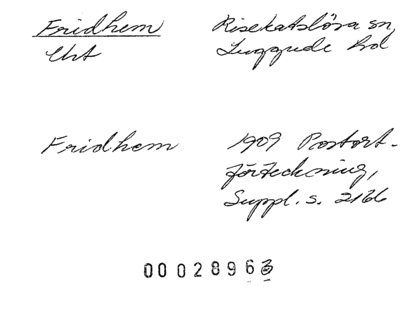 Fridhem
Lht
Risekatslösa sn
Luggude hd
Fridhem
1909 Postort-
förteckning,
Suppl. s. 2166
00028963